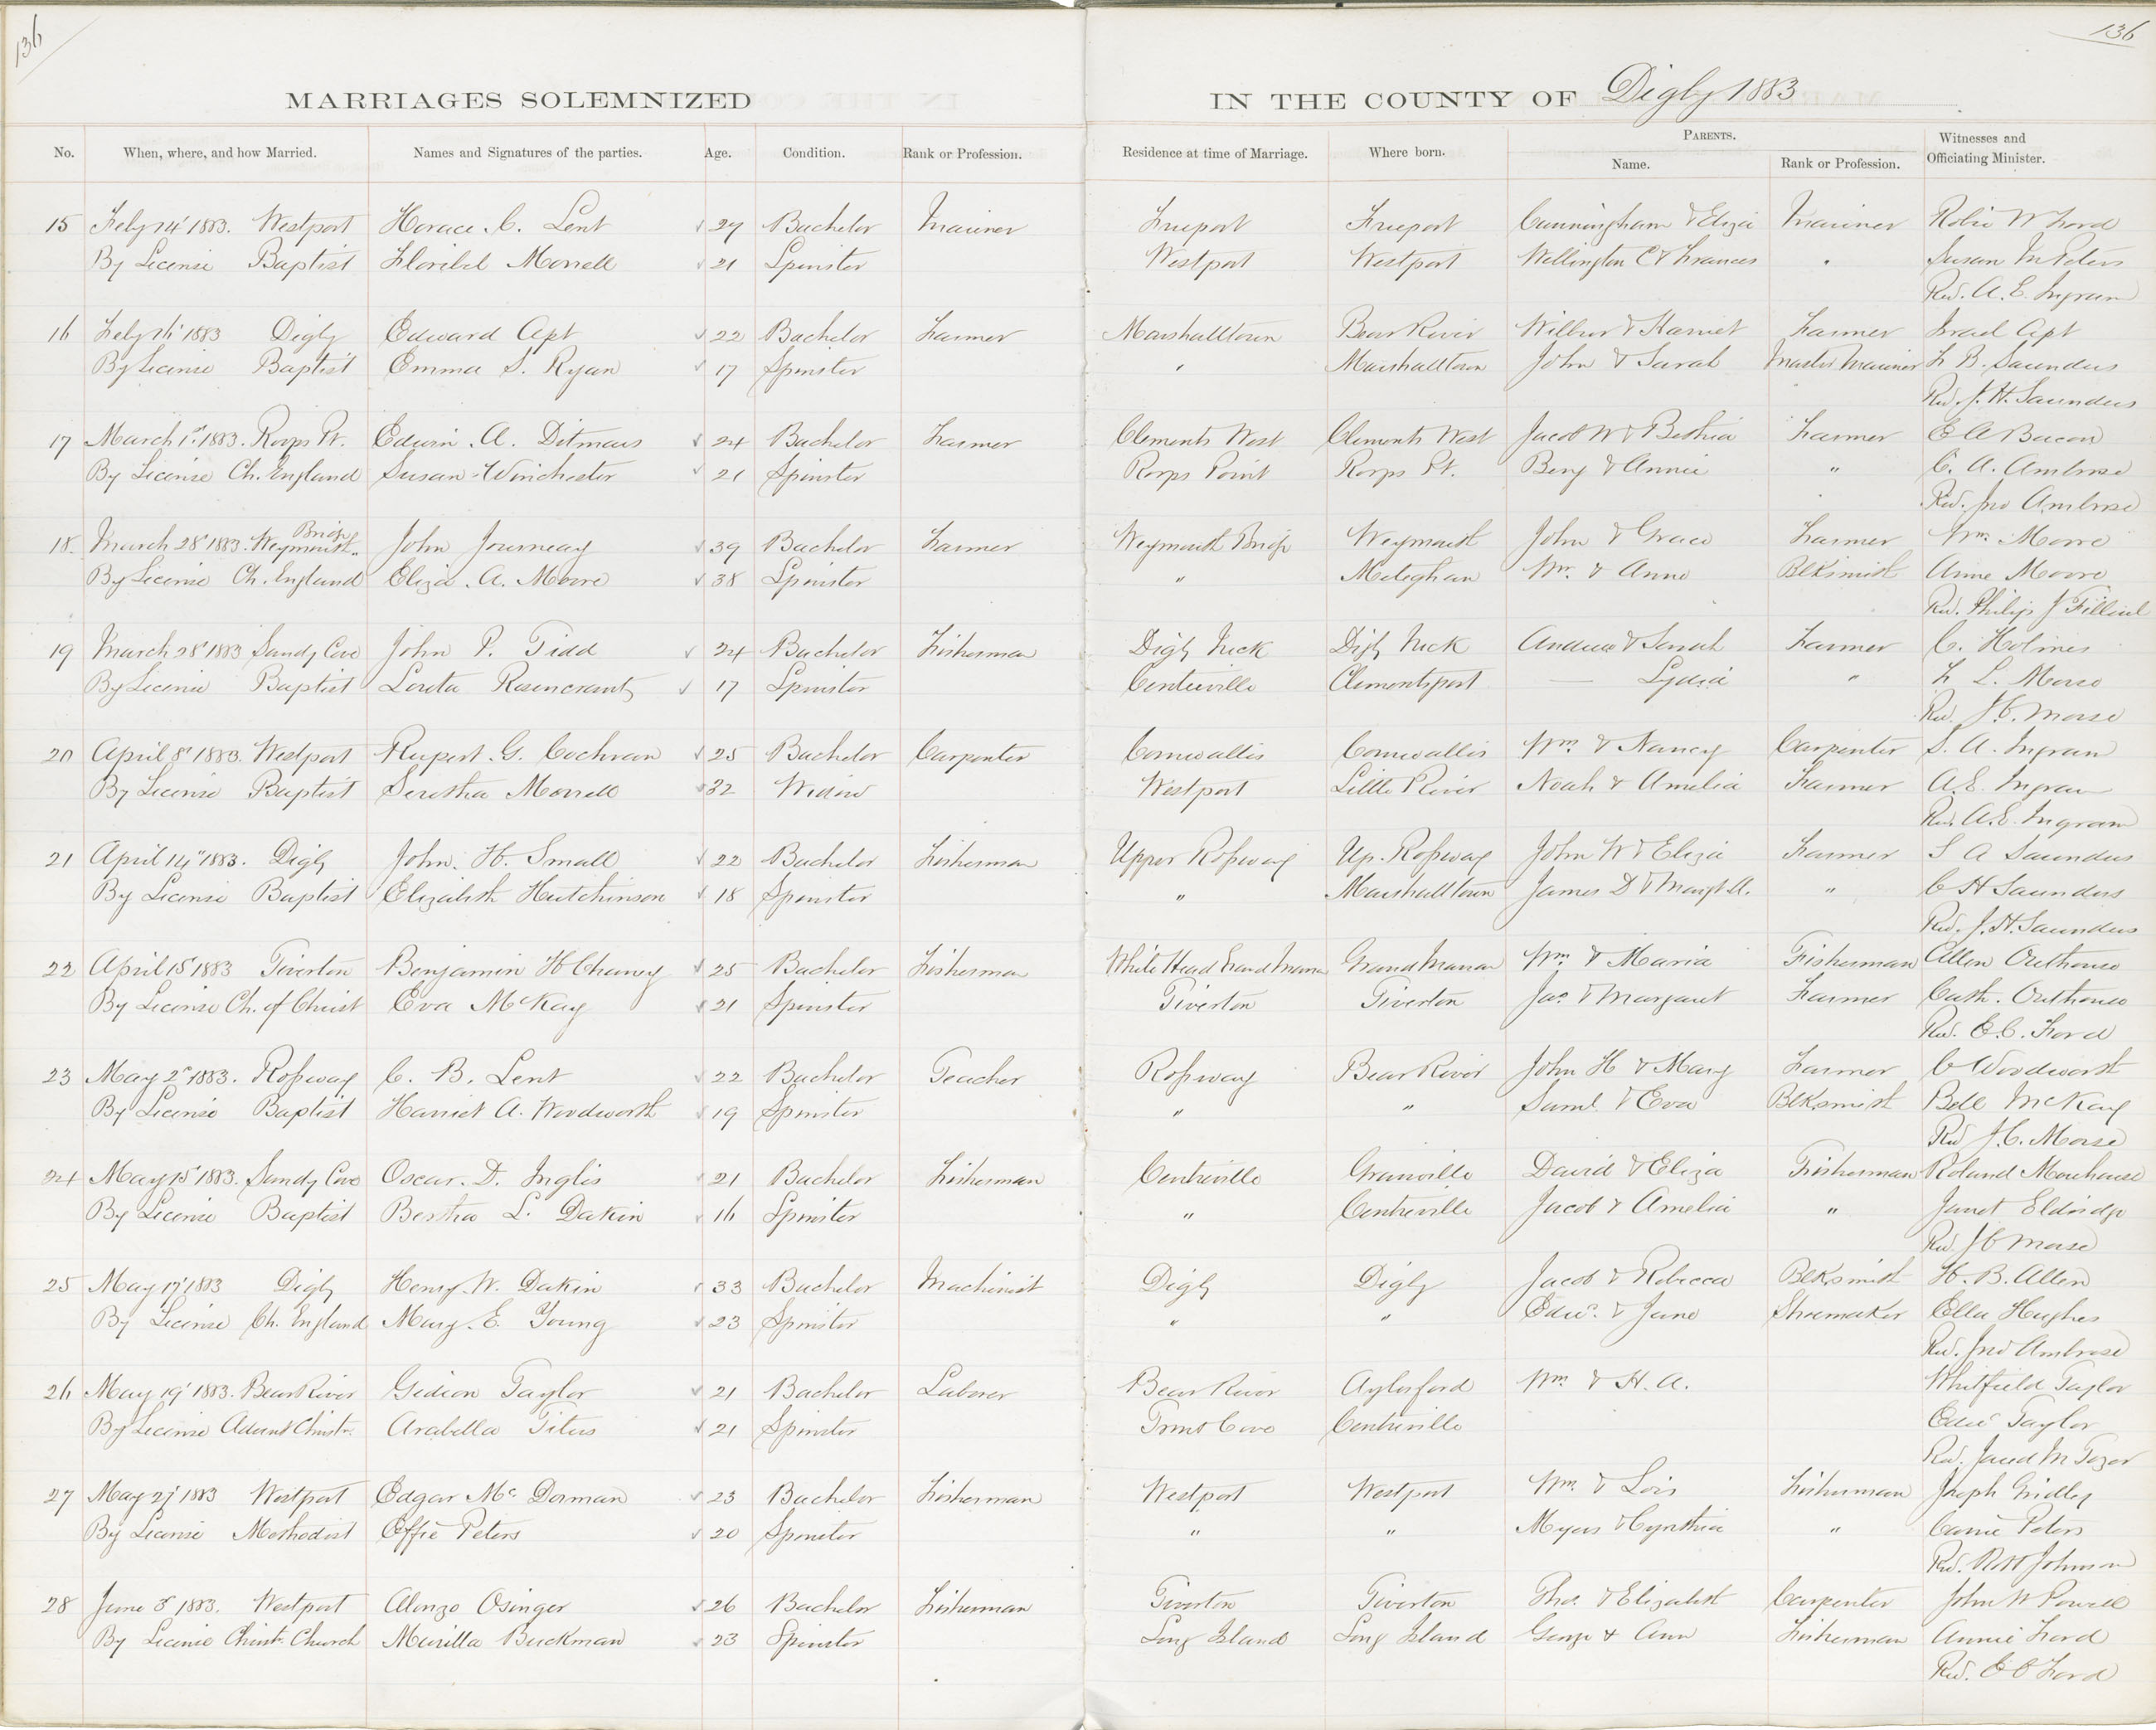 136
136
MARRIAGES SOLEMNIZED IN THE COUNTY OF Digby 1883
No. When, where, and how Married. Names and Signatures of the parties. Age. Condition. Rank or Profession. Residence at time of Marriage. Where born. PARENTS. Name. Rank or Profession. Witnesses and Officiating Minister.
15 Feby 14' 1883. Westport Horace C. Lent 27 Bachelor Mariner Freeport Freeport Cunningham & Eliza Mariner Robie W Ford
By License Baptist Floribel Morrell 21 Spinster Westport Westport Wellington C & Frances Susan M Peters
Rev. A. E. Ingram
16 Feby 16' 1883 Digby Edward Apt 22 Bachelor Farmer Marshalltown Bear River Wilbur & Harriet Farmer Israel Apt
By License Baptist Emma S. Ryan 17 Spinster " Marshalltown John & Sarah Master Mariner F. B. Saunders
Rev. J. H. Saunders
17 March 1st 1883. Roops Pt. Edwin A. Ditmars 24 Bachelor Farmer Clements West Clements West Jacob W & Bethia Farmer E A Bacon
By License Ch. England Susan Winchester 21 Spinster Roops Point Roops Pt. Benj & Annie " C. A. Ambrose
Rev. Jno Ambrose
18 March 28' 1883. Weymouth Bridge John Journeay 39 Bachelor Farmer Weymouth Bridge Weymouth John & Grace Farmer Wm. Moore
By License Ch. England Eliza A. Moore 38 Spinster " Meteghan Wm. & Anne Blksmith Anne Moore
Rev. Philip J Filleul
19 March 28' 1883 Sandy Cove John P. Tidd 24 Bachelor Fisherman Digby Neck Digby Neck Andrew & Sarah Farmer C. Holmes
By License Baptist Loretta Rosencrantz 17 Spinster Centreville Clementsport — Lydia " F. L. Morse
Rev. J. C. Morse
20 April 8' 1883. Westport Rupert G. Cochran 25 Bachelor Carpenter Cornwallis Cornwallis Wm. & Nancy Carpenter S. A. Ingram
By License Baptist Seretha Morrell 32 Widow Westport Little River Noah & Amelia Farmer A. E. Ingram
Rev. A. E. Ingram
21 April 14" 1883. Digby John H. Small 22 Bachelor Fisherman Upper Rossway Up. Rossway John W & Eliza Farmer S A Saunders
By License Baptist Elizabeth Hutchinson 18 Spinster " Marshalltown James D & Margt A. " C H Saunders
Rev. J. H. Saunders
22 April 15' 1883 Tiverton Benjamin H Cheney 25 Bachelor Fisherman White Head Grand Manan Grand Manan Wm. & Maria Fisherman Allen Outhouse
By License Ch. of Christ Eva McKay 21 Spinster Tiverton Tiverton Jas. & Margaret Farmer Cath. Outhouse
Rev. E. C. Ford
23 May 2" 1883. Rossway C. B. Lent 22 Bachelor Teacher Rossway Bear River John H & Mary Farmer C Woodworth
By License Baptist Harriet A. Woodworth 19 Spinster " " Saml. & Eva Blksmith Bell McKay
Rev J. C. Morse
24 May 15' 1883. Sandy Cove Oscar D. Inglis 21 Bachelor Fisherman Centreville Granville David & Eliza Fisherman Roland Morehouse
By License Baptist Bertha L. Dakin 16 Spinster " Centreville Jacob & Amelia " Janet Eldridge
Rev J C Morse
25 May 17' 1883 Digby Henry W. Dakin 33 Bachelor Machinist Digby Digby Jacob & Rebecca Blksmith H. B. Allen
By License Ch. England Mary E. Young 23 Spinster " " Edwd. & Jane Shoemaker Ella Hughes
Rev. Jno Ambrose
26 May 19' 1883. Bear River Gideon Taylor 21 Bachelor Laborer Bear River Aylesford Wm. & H. A. Whitfield Taylor
By License Advent Christn. Arabella Titus 21 Spinster Trout Cove Centreville Taylor
Rev.
27 May 27' 1883 Westport Edgar McDorman 23 Bachelor Fisherman Westport Westport Wm. & Lois Fisherman Joseph Gridley
By License Methodist Effie Peters 20 Spinster " " Myers & Cynthia " Carrie Peters
Rev. Johnson
28 June 3' 1883. Westport Alonzo Osinger 26 Bachelor Fisherman Tiverton Tiverton Thos. & Elizabeth Carpenter John W Powell
By License Christ. Church Murilla Buckman 23 Spinster Long Island Long Island George & Ann Fisherman Annie Ford
Rev. E C Ford